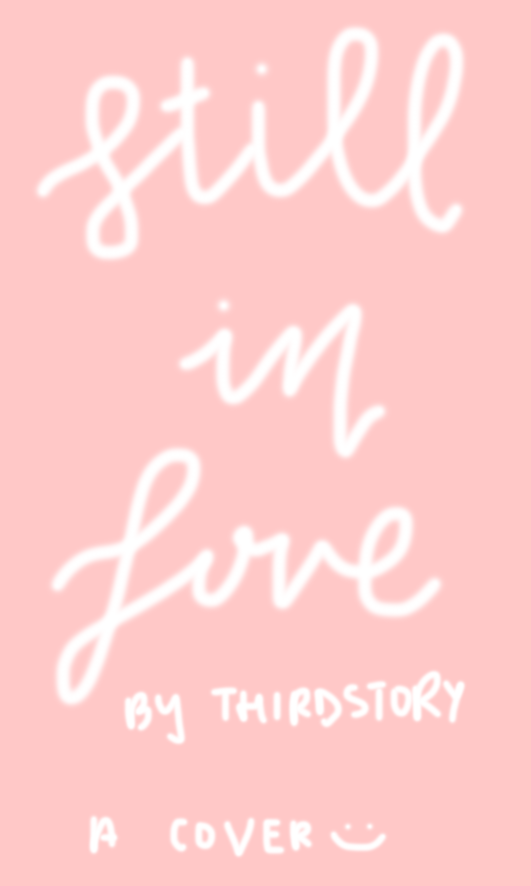 still
in
love
BY THIRDSTORY
A COVER